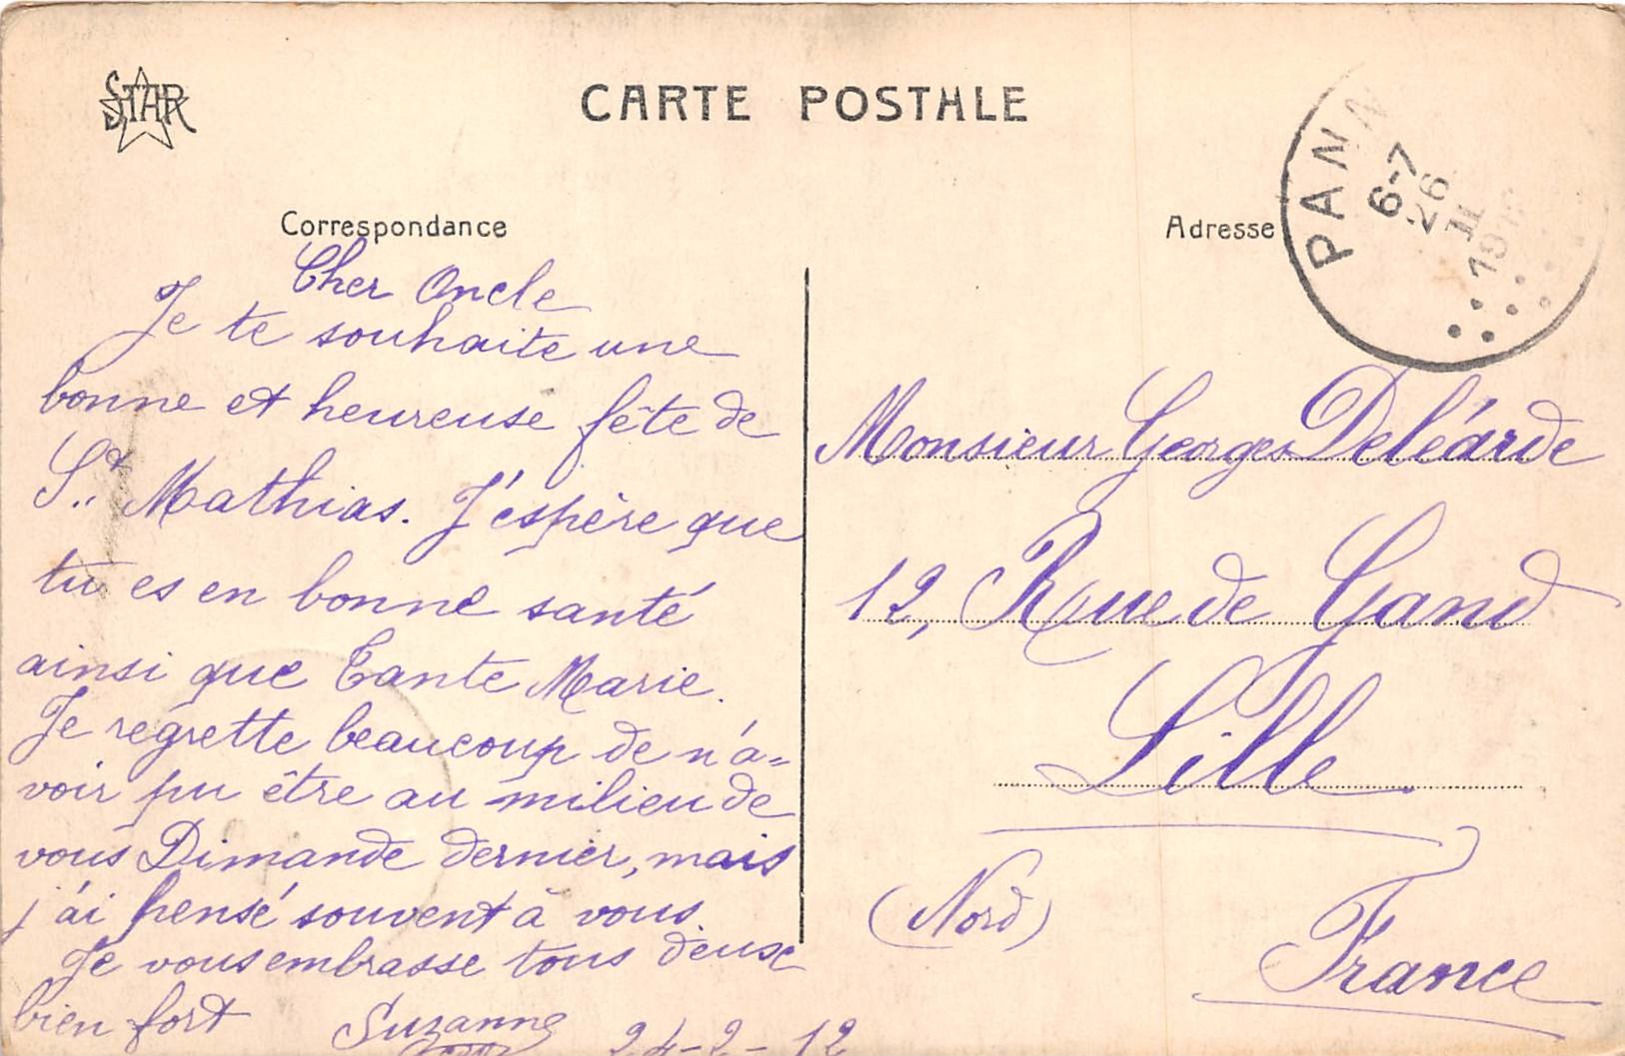 STAR
CARTE POSTALE
Correspondance
Cher Oncle
Je te souhaite une
bonne et heureuse fête de
St. Mathias. J'espère que
tu es en bonne santé
ainsi que Tante Marie.
Je regrette beaucoup de n'a=
voir pu être au milieu de
vous Dimande dernier, mais
j'ai pensé souvent à vous
Je vous embrasse tous deuse
bien fort Suzanne 24-2-12
Adresse
PANN
6-7
26
II
Monsieur Georges Deléarde
12, Rue de Gand
Lille
(Nord)
France